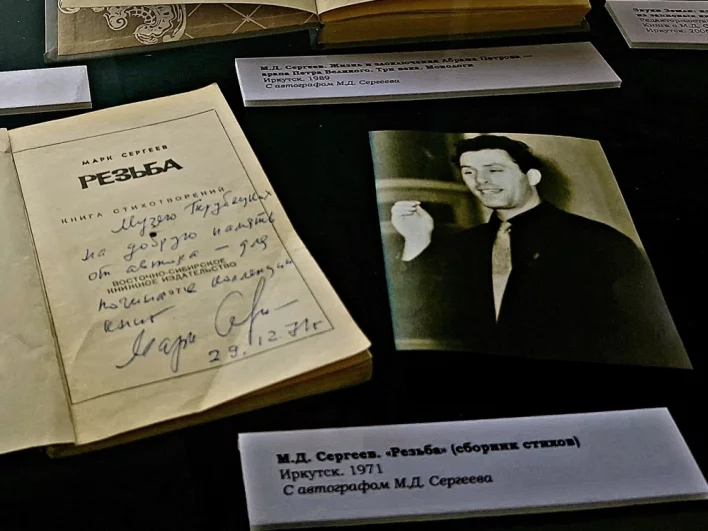 М.Д. Сергеев. Жизнь и злоключения Абрама Петрова —
арапа Петра Великого. Три века. Монологи
Иркутск. 1989
С автографом М.Д. Сергеева
Звуки Земли:
из записных кн
Иркутск. 2006
МАРК СЕРГЕЕВ
РЕЗЬБА
КНИГА СТИХОТВОРЕНИЙ
Музею Трубецких
на добрую память
от автора — для
ВОСТОЧНО-СИБИРСКОЕ
КНИЖНОЕ ИЗДАТЕЛЬСТВО
почина в коллекции
книг
Марк Сер
29.12.71г
М.Д. Сергеев. «Резьба» (сборник стихов)
Иркутск. 1971
С автографом М.Д. Сергеева